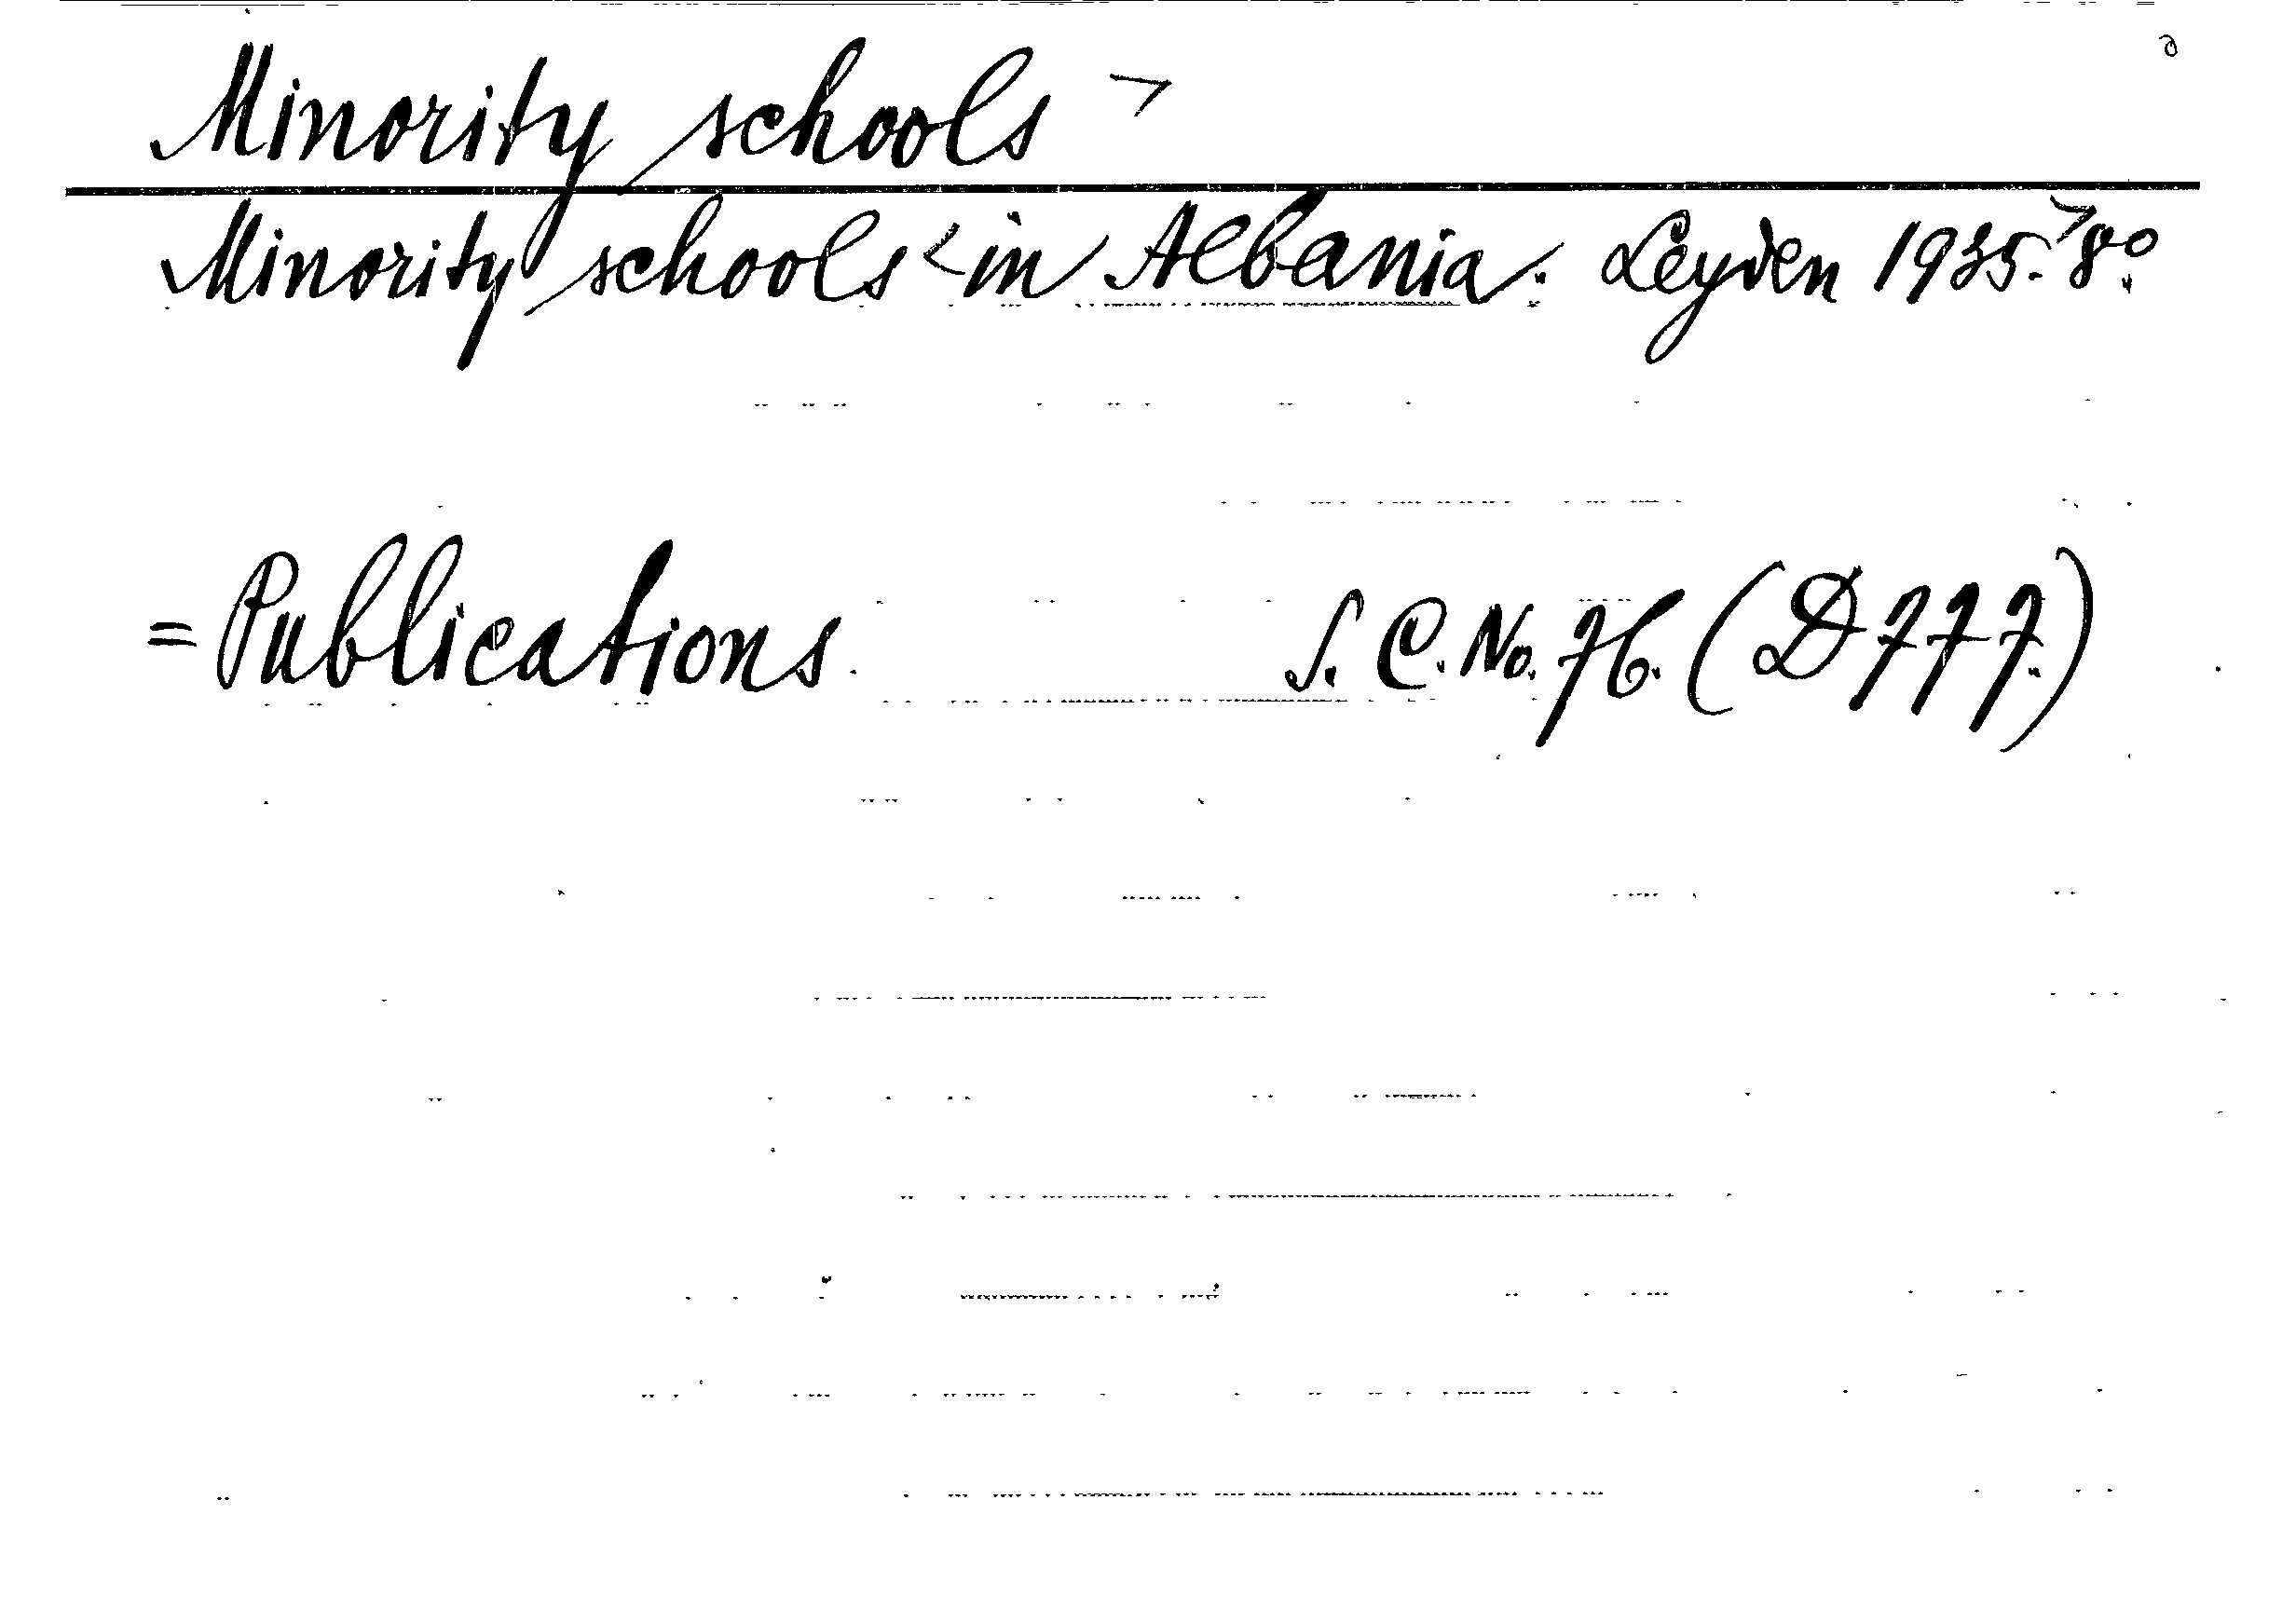 Minority schools >
Minority schools < in Albania. Leyden 1935. > 8°.
= Publications. S. C. No. 76. (D 777.)